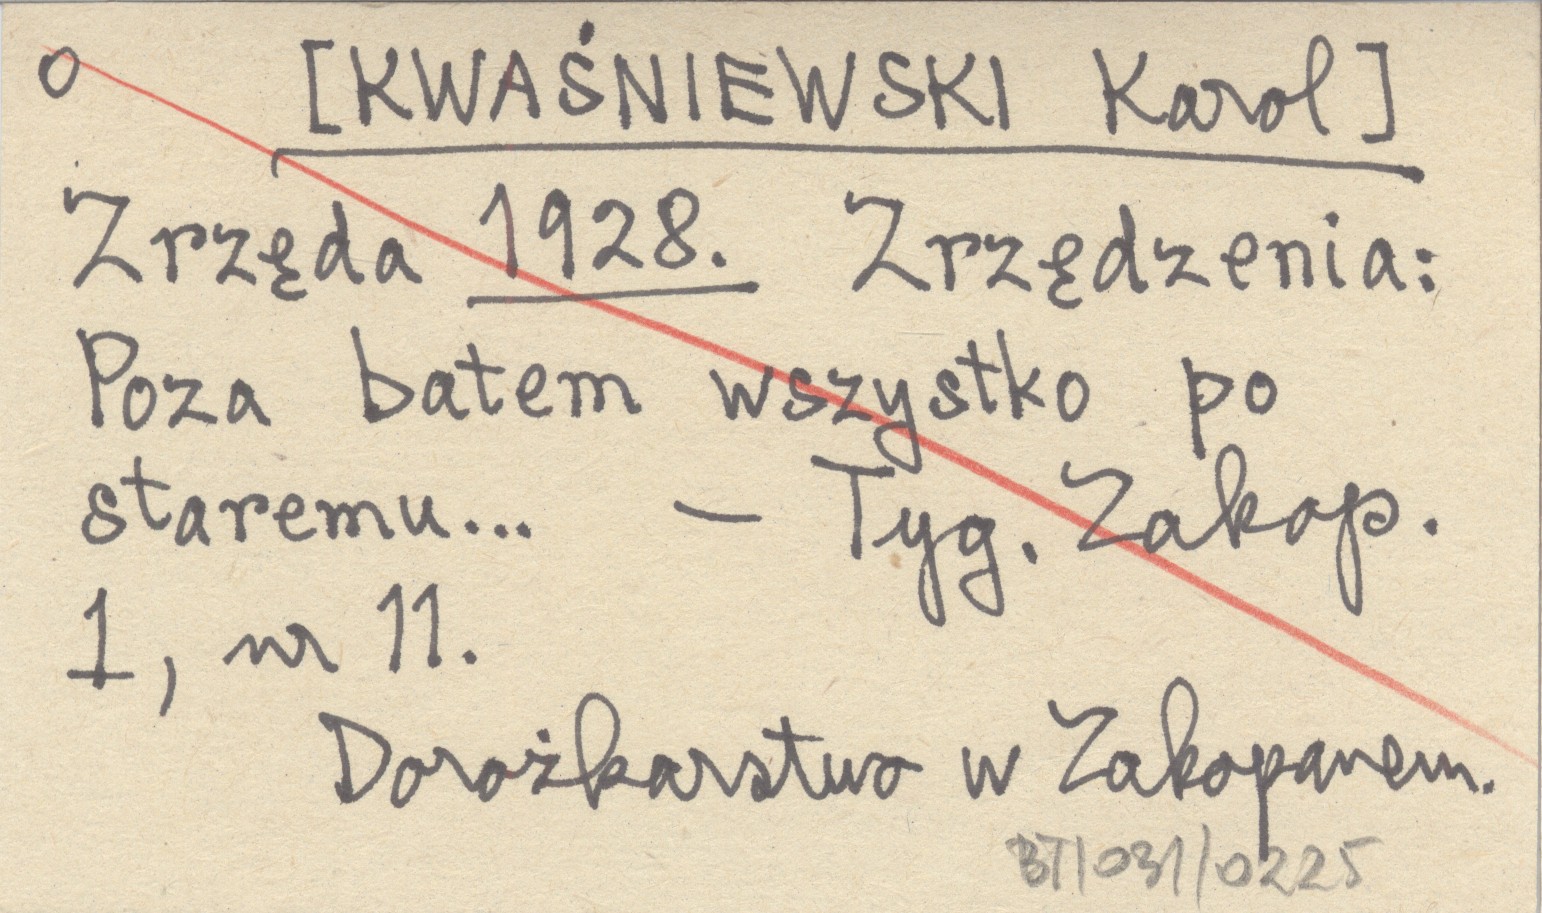 o [KWAŚNIEWSKI Karol]
Zrzęda 1928. Zrzędzenia:
Poza batem wszystko po
staremu... – Tyg. Zakop.
1, nr 11.
Dorożkarstwo w Zakopanem.
BT/031/0225